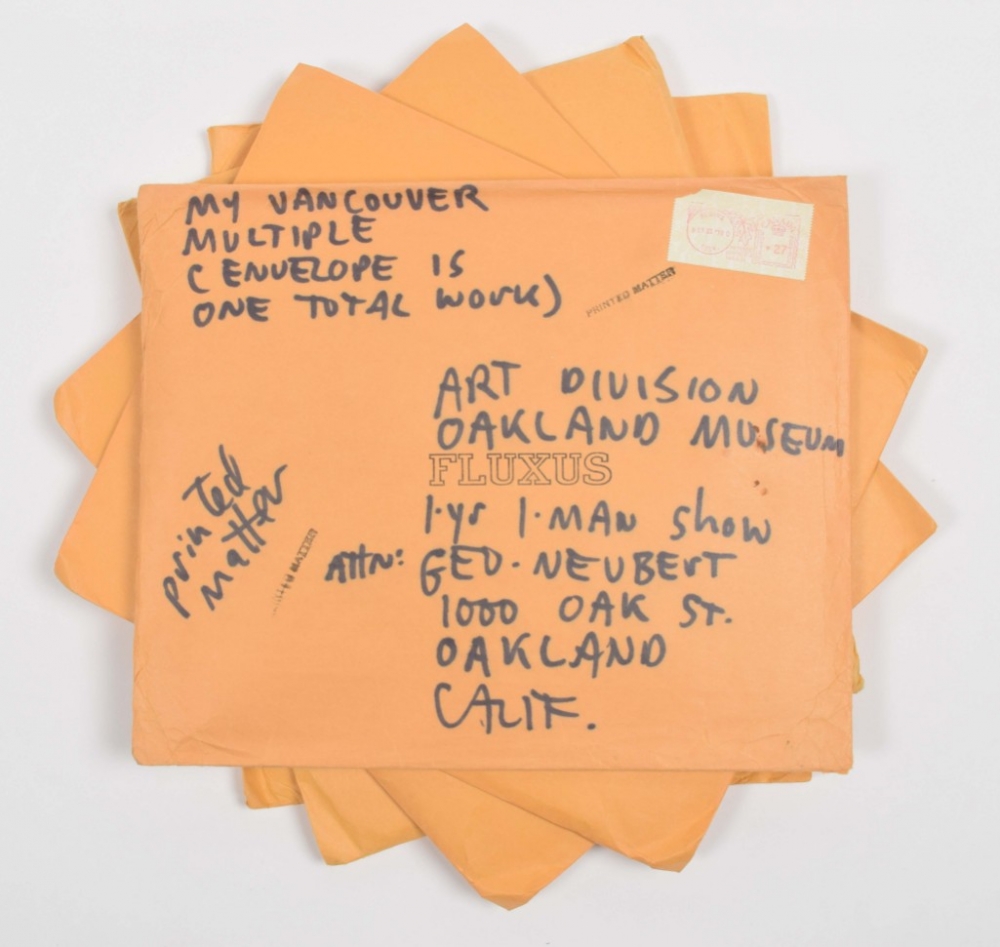 MY VANCOUVER
MULTIPLE
(ENVELOPE IS
ONE TOTAL WORK)
PRINTED MATTER
ART DIVISION
OAKLAND MUSEUM
FLUXUS
1·yr 1·MAN Show
Attn: GEO. NEUBERT
1000 OAK ST.
OAKLAND
CALIF.
printed
matter
MATTER